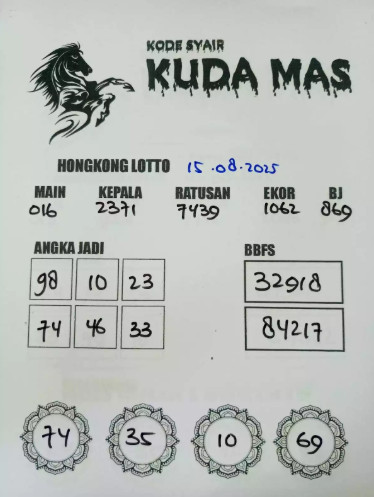 KODE SYAIR
KUDA MAS
HONGKONG LOTTO 15.08.2025
MAIN KEPALA RATUSAN EKOR BJ
016 2371 7439 1062 869
ANGKA JADI BBFS
98 10 23 32918
74 46 33 84217
74 35 10 69